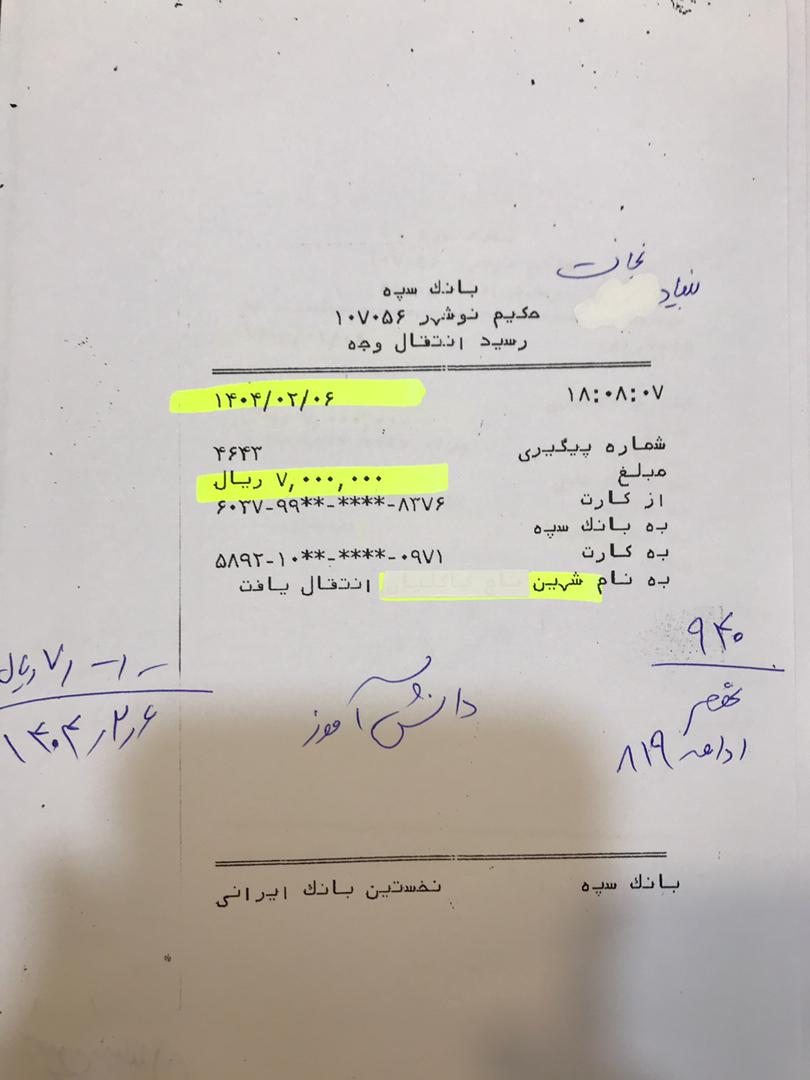 بنیاد نجات
بانك سپه
حكیم نوشهر ۱۰۷۰۵۶
رسید انتقال وجه
۱۸:۰۸:۰۷ ۱۴۰۴/۰۲/۰۶
شماره پیگیری ۴۶۴۳
مبلغ ۷,۰۰۰,۰۰۰ ریال
از كارت ۶۰۳۷-۹۹**-****-۸۳۷۶
به بانك سپه
به كارت ۵۸۹۲-۱۰**-****-۰۹۷۱
به نام شهین انتقال یافت
۹۴۰
ادامه ۸۱۹
دانش آموز
۷٫-٫- ریال
۱۴۰۴٫۲٫۶
بانك سپه نخستین بانك ایرانی